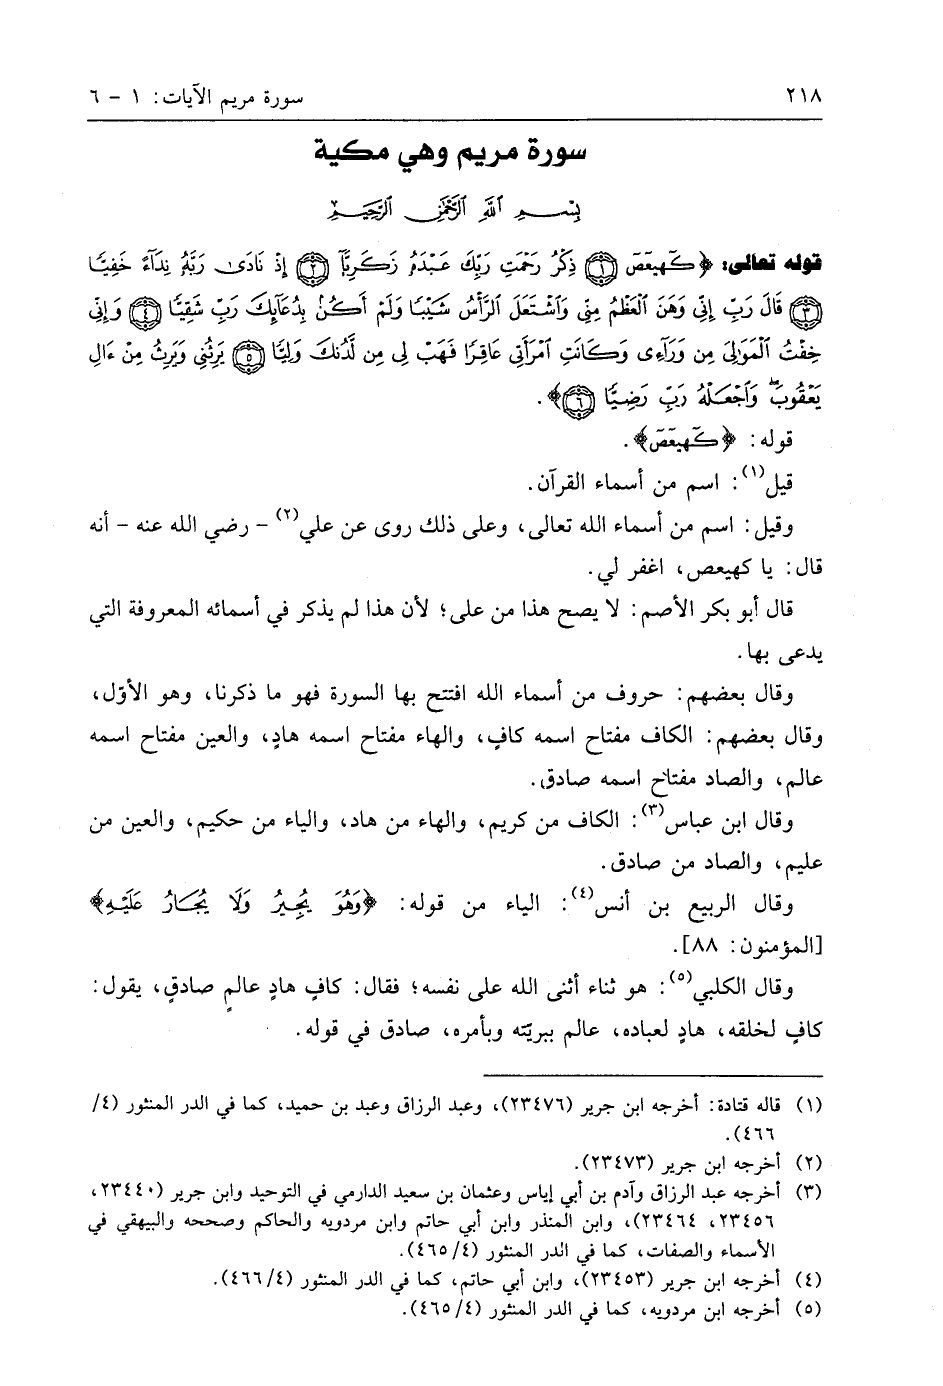 ٢١٨ سورة مريم الآيات: ١ - ٦
سورة مريم وهي مكية
بِسْمِ اللَّهِ الرَّحْمَٰنِ الرَّحِيمِ
قوله تعالى: ﴿كٓهيعٓصٓ ۝١ ذِكْرُ رَحْمَتِ رَبِّكَ عَبْدَهُۥ زَكَرِيَّآ ۝٢ إِذْ نَادَىٰ رَبَّهُۥ نِدَآءً خَفِيًّا
۝٣ قَالَ رَبِّ إِنِّي وَهَنَ ٱلْعَظْمُ مِنِّي وَٱشْتَعَلَ ٱلرَّأْسُ شَيْبًا وَلَمْ أَكُنۢ بِدُعَآئِكَ رَبِّ شَقِيًّا ۝٤ وَإِنِّي
خِفْتُ ٱلْمَوَٰلِيَ مِن وَرَآءِي وَكَانَتِ ٱمْرَأَتِي عَاقِرًا فَهَبْ لِي مِن لَّدُنكَ وَلِيًّا ۝٥ يَرِثُنِي وَيَرِثُ مِنْ ءَالِ
يَعْقُوبَۖ وَٱجْعَلْهُ رَبِّ رَضِيًّا ۝٦﴾.
قوله: ﴿كٓهيعٓصٓ﴾.
قيل(١): اسم من أسماء القرآن.
وقيل: اسم من أسماء الله تعالى، وعلى ذلك روى عن علي(٢) - رضي الله عنه - أنه
قال: يا كهيعص، اغفر لي.
قال أبو بكر الأصم: لا يصح هذا من على؛ لأن هذا لم يذكر في أسمائه المعروفة التي
يدعى بها.
وقال بعضهم: حروف من أسماء الله افتتح بها السورة فهو ما ذكرنا، وهو الأوّل،
وقال بعضهم: الكاف مفتاح اسمه كافٍ، والهاء مفتاح اسمه هادٍ، والعين مفتاح اسمه
عالم، والصاد مفتاح اسمه صادق.
وقال ابن عباس(٣): الكاف من كريم، والهاء من هاد، والياء من حكيم، والعين من
عليم، والصاد من صادق.
وقال الربيع بن أنس(٤): الياء من قوله: ﴿وَهُوَ يُجِيرُ وَلَا يُجَارُ عَلَيْهِ﴾
[المؤمنون: ٨٨].
وقال الكلبي(٥): هو ثناء أثنى الله على نفسه؛ فقال: كافٍ هادٍ عالمٍ صادقٍ، يقول:
كافٍ لخلقه، هادٍ لعباده، عالم ببريّته وبأمره، صادق في قوله.
(١) قاله قتادة: أخرجه ابن جرير (٢٣٤٧٦)، وعبد الرزاق وعبد بن حميد، كما في الدر المنثور (٤/
٤٦٦).
(٢) أخرجه ابن جرير (٢٣٤٧٣).
(٣) أخرجه عبد الرزاق وآدم بن أبي إياس وعثمان بن سعيد الدارمي في التوحيد وابن جرير (٢٣٤٤٠،
٢٣٤٥٦، ٢٣٤٦٤)، وابن المنذر وابن أبي حاتم وابن مردويه والحاكم وصححه والبيهقي في
الأسماء والصفات، كما في الدر المنثور (٤/٤٦٥).
(٤) أخرجه ابن جرير (٢٣٤٥٣)، وابن أبي حاتم، كما في الدر المنثور (٤/٤٦٦).
(٥) أخرجه ابن مردويه، كما في الدر المنثور (٤/٤٦٥).